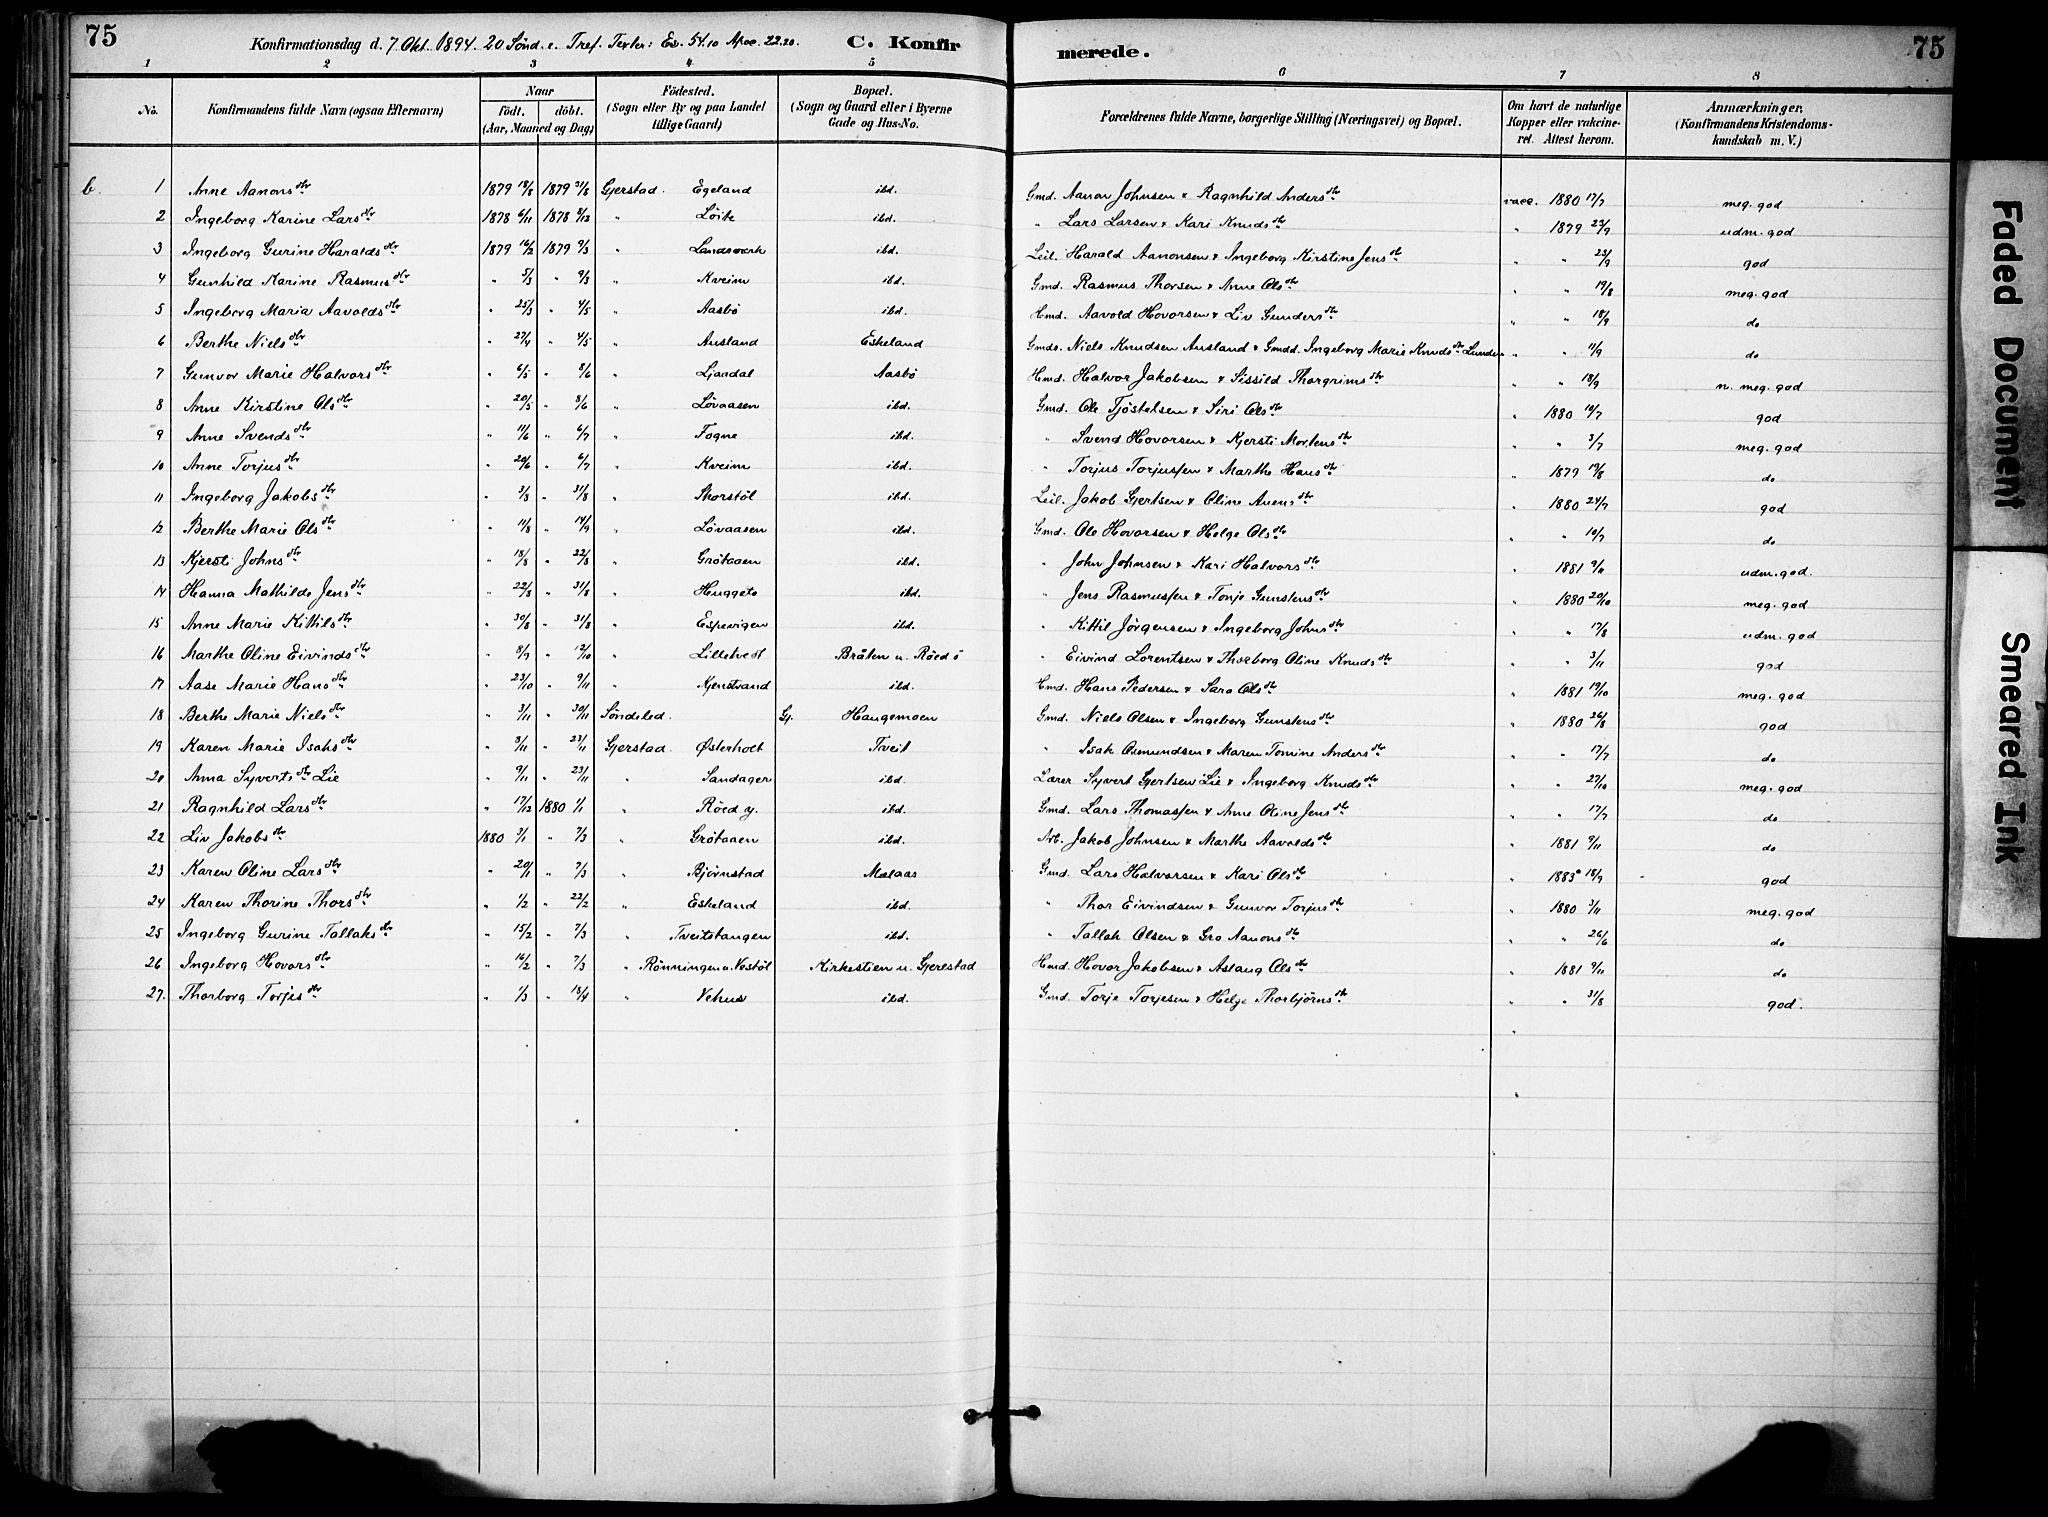 75 Konfirmationsdag d. 7 Okt. 1894. 20 Sönd. e. Tref. Texter: Es. 54.10 Apoc. 22.20. C. Konfirmerede. 75
1 2 3 4 5 6 7 8
No. Konfirmandens fulde Navn (ogsaa Efternavn) Naar födt. döbt. (Aar, Maaned og Dag) Födested. (Sogn eller By og paa Landet tillige Gaard) Bopæl. (Sogn og Gaard eller i Byerne Gade og Hus-No. Forældrenes fulde Navne, borgerlige Stilling (Næringsvei) og Bopæl. Om havt de naturlige Kopper eller vakcineret. Attest herom. Anmærkninger. (Konfirmandens Kristendomskundskab m. V.)
b. 1 Anne Aanonsdtr 1879 18/8 1879 31/8 Gjerstad. Egeland ibd. Gmd. Aanon Johnsen & Ragnhild Andersdtr vacc. 1880 17/7 meg. god
2 Ingeborg Karine Larsdtr 1878 6/11 1878 8/12 " Löite ibd. " Lars Larsen & Kari Knudsdtr " 1879 23/9 udm. god
3 Ingeborg Gurine Haraldsdtr 1879 16/2 1879 9/3 " Landsverk ibd. Leil. Harald Aanonsen & Ingeborg Kirstine Jensdtr " " 23/9 god
4 Gunhild Karine Rasmusdtr " 5/3 " 9/3 " Kveim ibd. Gmd. Rasmus Thorsen & Anne Olsdtr " " 19/8 meg. god
5 Ingeborg Maria Aavoldsdtr " 25/3 " 4/5 " Aasbö ibd. Hmd. Aavold Hovorsen & Liv Gundersdtr " " 18/9 do
6 Berthe Nielsdtr " 27/4 " 4/5 " Ausland Eskeland Gmds. Niels Knudsen Ausland & Gmdd. Ingeborg Marie Knudsdtr Lunden " " 11/9 do
7 Gunvor Marie Halvorsdtr " 6/5 " 8/6 " Ljaadal Aasbö Hmd. Halvor Jakobsen & Sissild Thorgrimsdtr " " 18/9 n. meg. god
8 Anne Kirstine Olsdtr " 20/5 " 8/6 " Lövaasen ibd. Gmd. Ole Tjöstelsen & Siri Olsdtr " 1880 10/7 god
9 Anne Svendsdtr " 11/6 " 6/7 " Fogne ibd. " Svend Hovorsen & Kjersti Mortensdtr " " 3/7 meg. god
10 Anne Torjusdtr " 20/6 " 6/7 " Kveim ibd. " Torjus Torjussen & Marthe Hansdtr " 1879 19/8 do
11 Ingeborg Jakobsdtr " 3/8 " 31/8 " Thorstöl ibd. Leil. Jakob Gjertsen & Oline Auensdtr " 1880 24/7 god
12 Berthe Marie Olsdtr " 11/8 " 14/9 " Lövaasen ibd. Gmd. Ole Hovorsen & Helge Olsdtr " " 10/7 do
13 Kjersti Johnsdtr " 18/8 " 22/8 " Grötaaen ibd. " John Johnsen & Kari Halvorsdtr " 1881 9/11 udm. god.
14 Hanna Mathilde Jensdtr " 22/8 " 31/8 " Huggeto ibd. " Jens Rasmussen & Tonje Gunstensdtr " 1880 20/10 meg. god
15 Anne Marie Kittilsdtr " 30/8 " 31/8 " Espevigen ibd. " Kittil Jörgensen & Ingeborg Johnsdtr " " 17/8 udm. god
16 Marthe Oline Eivindsdtr " 8/9 " 12/10 " Lilletvedt Bråten u. Röed ö " Eivind Lorentsen & Thorborg Oline Knudsdtr " " 3/11 god
17 Aase Marie Hansdtr " 23/10 " 9/11 " Kjenstvand ibd. Hmd. Hans Pedersen & Sara Olsdtr " 1881 19/10 meg. god
18 Berthe Marie Nielsdtr " 3/11 " 30/11 Söndeled. Gj. Haugemoen Gmd. Niels Olsen & Ingeborg Gunstensdtr " 1880 26/8 god
19 Karen Marie Isaksdtr " 8/11 " 23/11 Gjerstad. Østerholt Tveit " Isak Osmundsen & Maren Tomine Andersdtr " " 17/7 do
20 Anna Syvertsdtr Lie " 9/11 " 23/11 " Sandager ibd. Lærer Syvert Gjertsen Lie & Ingeborg Knudsdtr " " 27/10 meg. god
21 Ragnhild Larsdtr " 17/12 1880 1/1 " Röed y. ibd. Gmd. Lars Thomassen & Anne Oline Jensdtr " " 17/7 do
22 Liv Jakobsdtr 1880 3/1 " 7/3 " Grötaaen ibd. Arb. Jakob Johnsen & Marthe Aavoldsdtr " 1881 9/11 do
23 Karen Oline Larsdtr " 20/1 " 7/3 " Björnstad Malaas Gmd. Lars Halvorsen & Kari Olsdtr " 1883 18/9 god
24 Karen Thorine Thorsdtr " 1/2 " 22/2 " Eskeland ibd. " Thor Eivindsen & Gunvor Torjusdtr " 1880 3/11 meg. god
25 Ingeborg Gurine Tallaksdtr " 15/2 " 7/3 " Tveitstangen ibd. " Tallak Olsen & Gro Aanonsdtr " " 26/6 do
26 Ingeborg Hovorsdtr " 16/2 " 7/3 " Rönningen u. Vestöl Kirkestien u. Gjerestad Hmd. Hovor Jakobsen & Aslaug Olsdtr " 1881 9/11 do
27. Thorborg Torjesdtr " 1/3 " 18/4 " Vehus ibd. Gmd. Torje Torjesen & Helje Thorbjörnsdtr " " 31/8 god.
Faded Document
Smeared Ink